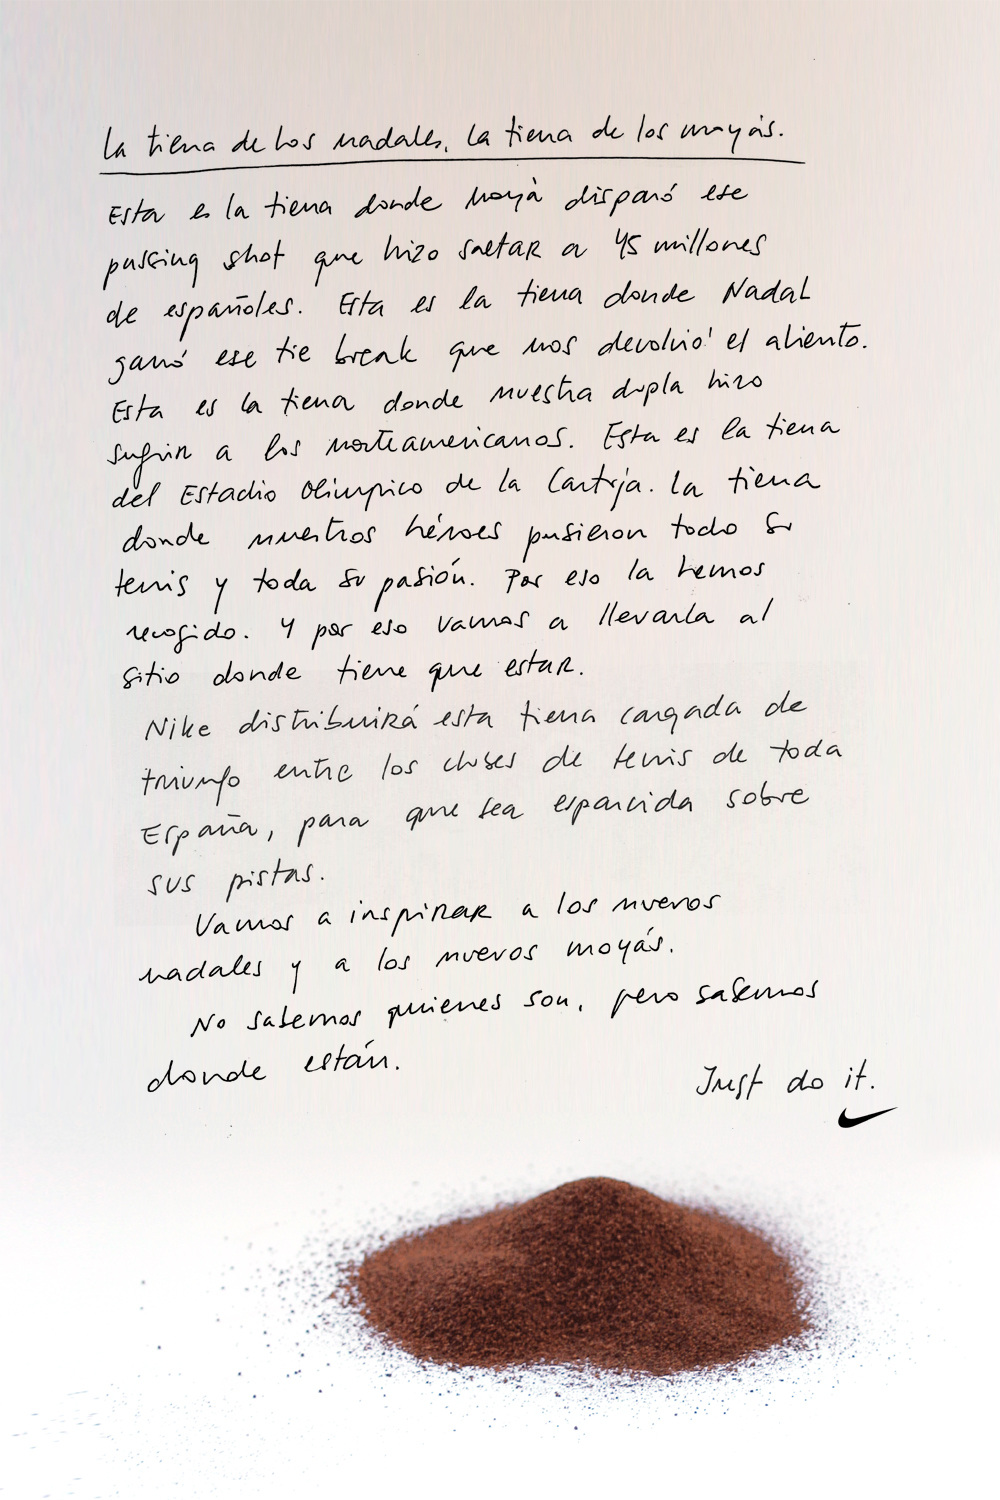 La tierra de los nadales, la tierra de los moyás.
Esta es la tierra donde Moyà disparó ese
passing shot que hizo saltar a 45 millones
de españoles. Esta es la tierra donde Nadal
ganó ese tie break que nos devolvió el aliento.
Esta es la tierra donde nuestra dupla hizo
sufrir a los norteamericanos. Esta es la tierra
del Estadio Olímpico de la Cartuja. La tierra
donde nuestros héroes pusieron todo su
tenis y toda su pasión. Por eso la hemos
recogido. Y por eso vamos a llevarla al
sitio donde tiene que estar.
Nike distribuirá esta tierra cargada de
triunfo entre los clubes de tenis de toda
España, para que sea esparcida sobre
sus pistas.
Vamos a inspirar a los nuevos
nadales y a los nuevos moyás.
No sabemos quienes son, pero sabemos
donde están.
Just do it.